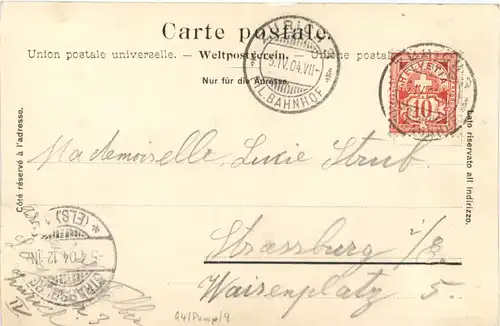 Carte postale.
Union postale universelle. — Weltpostverein. — Unione postale
Nur für die Adresse.
Côté réservé à l'adresse.
Lato riservato all indirizzo.
HELVETIA
10
ZÜRICH
5.IV.04.VII-
BAHNHOF
Mademoiselle Lucie Strub
Strassburg i/E.
Waisenplatz 5.
STRASSBURG
(ELS)
5 4 04 12-1N